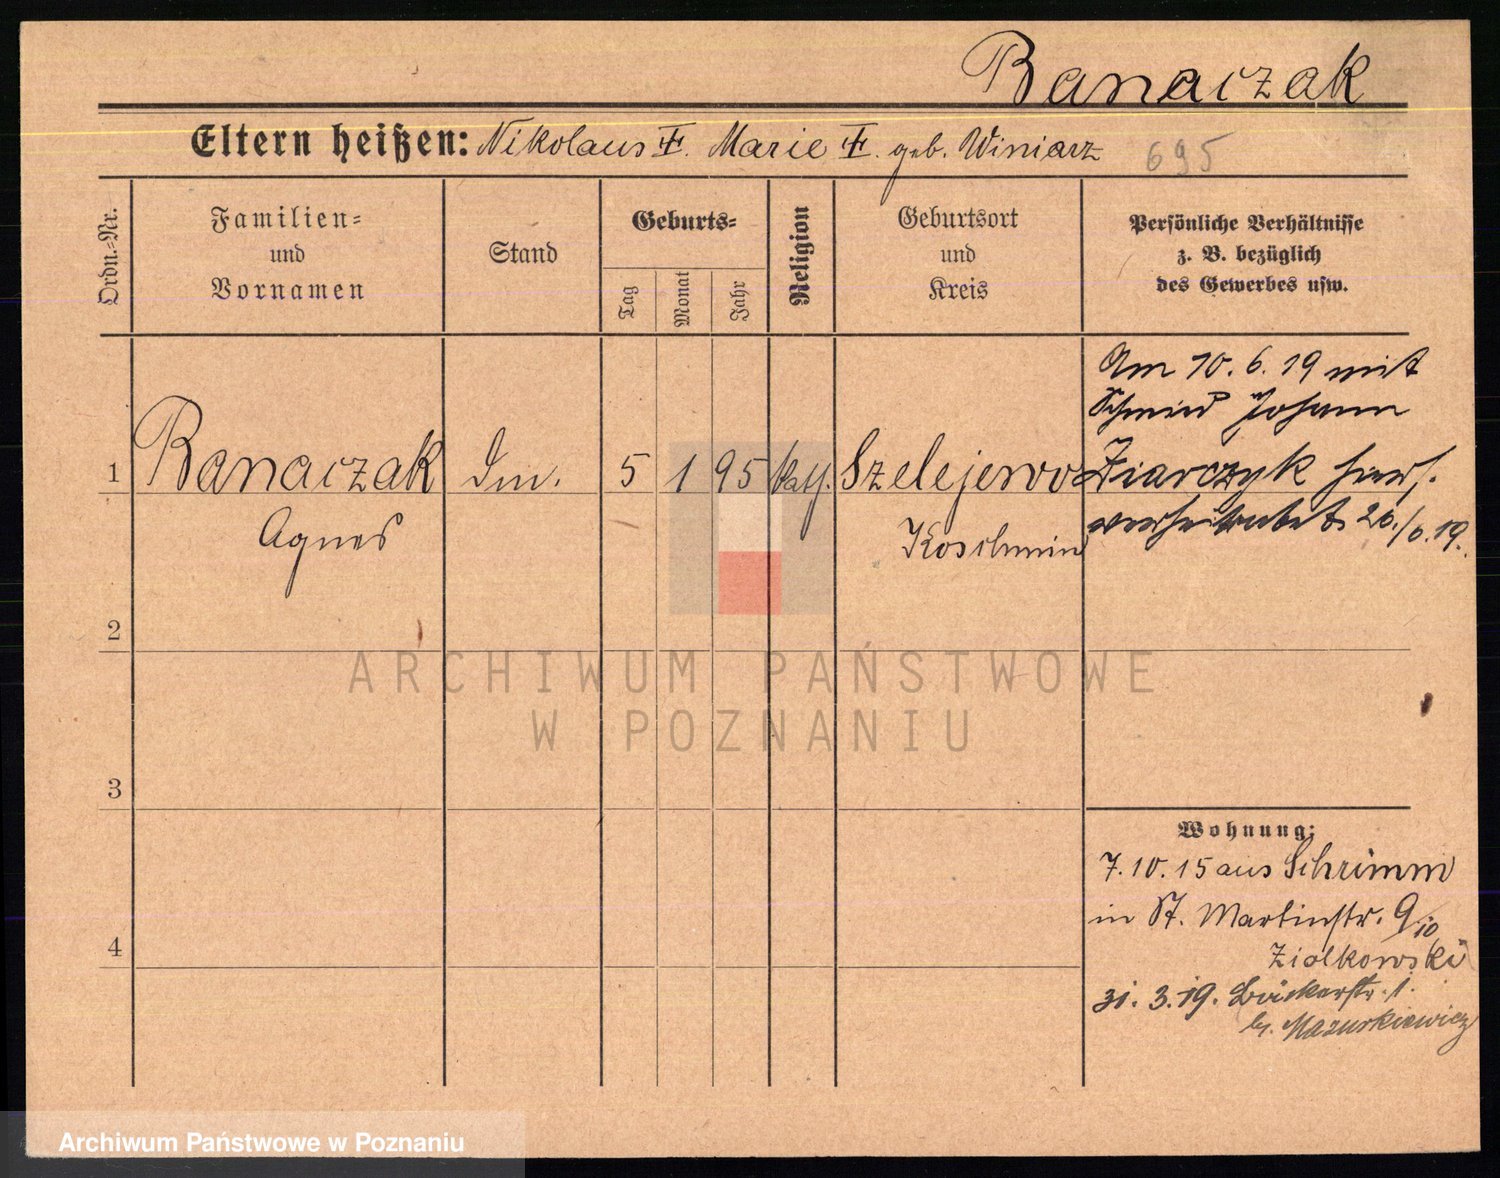 Banaczak
Eltern heißen: Nikolaus ‡. Marie ‡. geb. Winiarz 695
Ordn.=Nr.
Familien=
und
Vornamen
Stand
Geburts=
Tag
Monat
Jahr
Religion
Geburtsort
und
Kreis
Persönliche Verhältnisse
z. B. bezüglich
des Gewerbes usw.
1 Banaczak 5 1 95 kath. Szelejewo
Agnes Koschmin
Am 10. 6. 19 mit
Schmied Johann
Ziarczyk hier
verheiratet 26./6. 19.
2
3
4
Wohnung:
7. 10. 15 aus Schrimm
in St. Martinstr. 9/10
Ziolkowski
31. 3. 19. Bäckerstr. 1.
b. Mazurkiewicz
ARCHIWUM PAŃSTWOWE
W POZNANIU
Archiwum Państwowe w Poznaniu